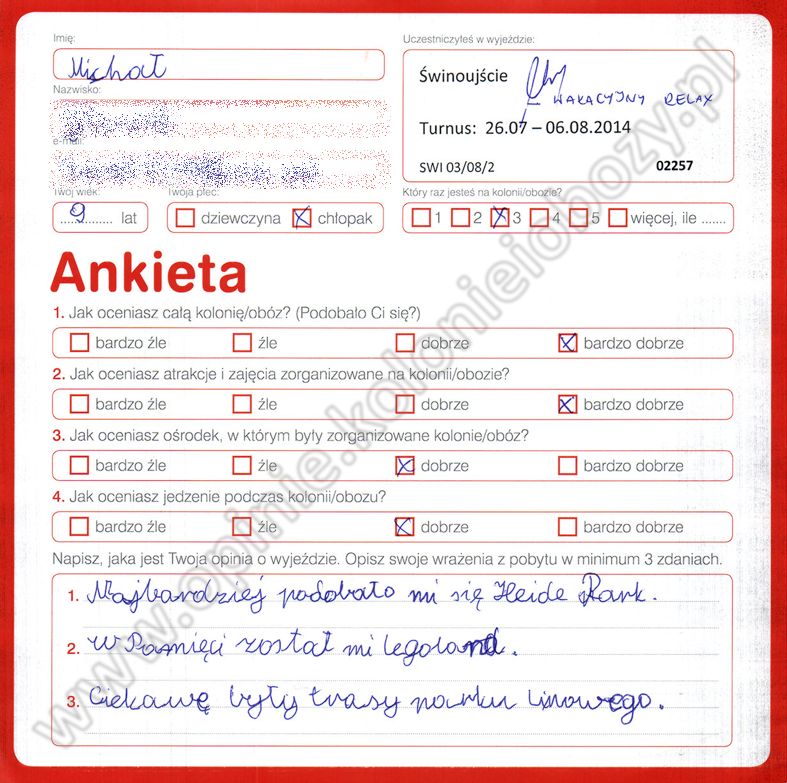 Imię:
Uczestniczyłeś w wyjeździe:
Michał
Świnoujście
WAKACYJNY RELAX
Nazwisko:
Turnus: 26.07 – 06.08.2014
e-mail:
SWI 03/08/2 02257
Twój wiek: Twoja płeć: Który raz jesteś na kolonii/obozie?
9 lat dziewczyna chłopak 1 2 3 4 5 więcej, ile .......
Ankieta
1. Jak oceniasz całą kolonię/obóz? (Podobało Ci się?)
bardzo źle źle dobrze bardzo dobrze
2. Jak oceniasz atrakcje i zajęcia zorganizowane na kolonii/obozie?
bardzo źle źle dobrze bardzo dobrze
3. Jak oceniasz ośrodek, w którym były zorganizowane kolonie/obóz?
bardzo źle źle dobrze bardzo dobrze
4. Jak oceniasz jedzenie podczas kolonii/obozu?
bardzo źle źle dobrze bardzo dobrze
Napisz, jaka jest Twoja opinia o wyjeździe. Opisz swoje wrażenia z pobytu w minimum 3 zdaniach.
1. Najbardziej podobało mi się Heide Park.
2. W Pamięci został mi legoland.
3. Ciekawę były trasy parku linowego.
www.opinie.kolonieiobozy.pl